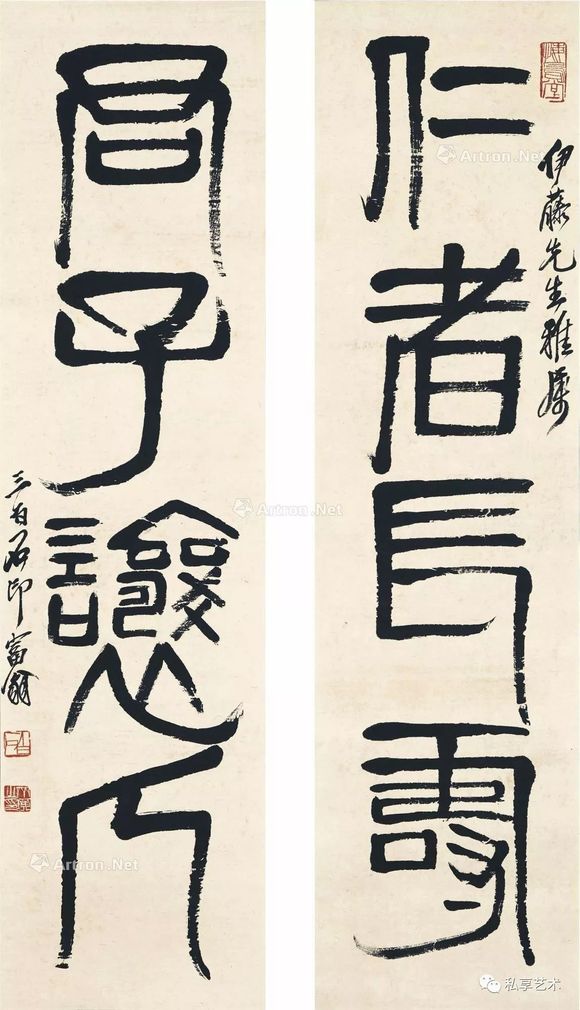 伊藤先生雅屬
仁者長壽
君子人
三百石印富翁
Artron.Net
Artron.Net
Artron.Net
Artron.Net
Artron.Net
私享艺术